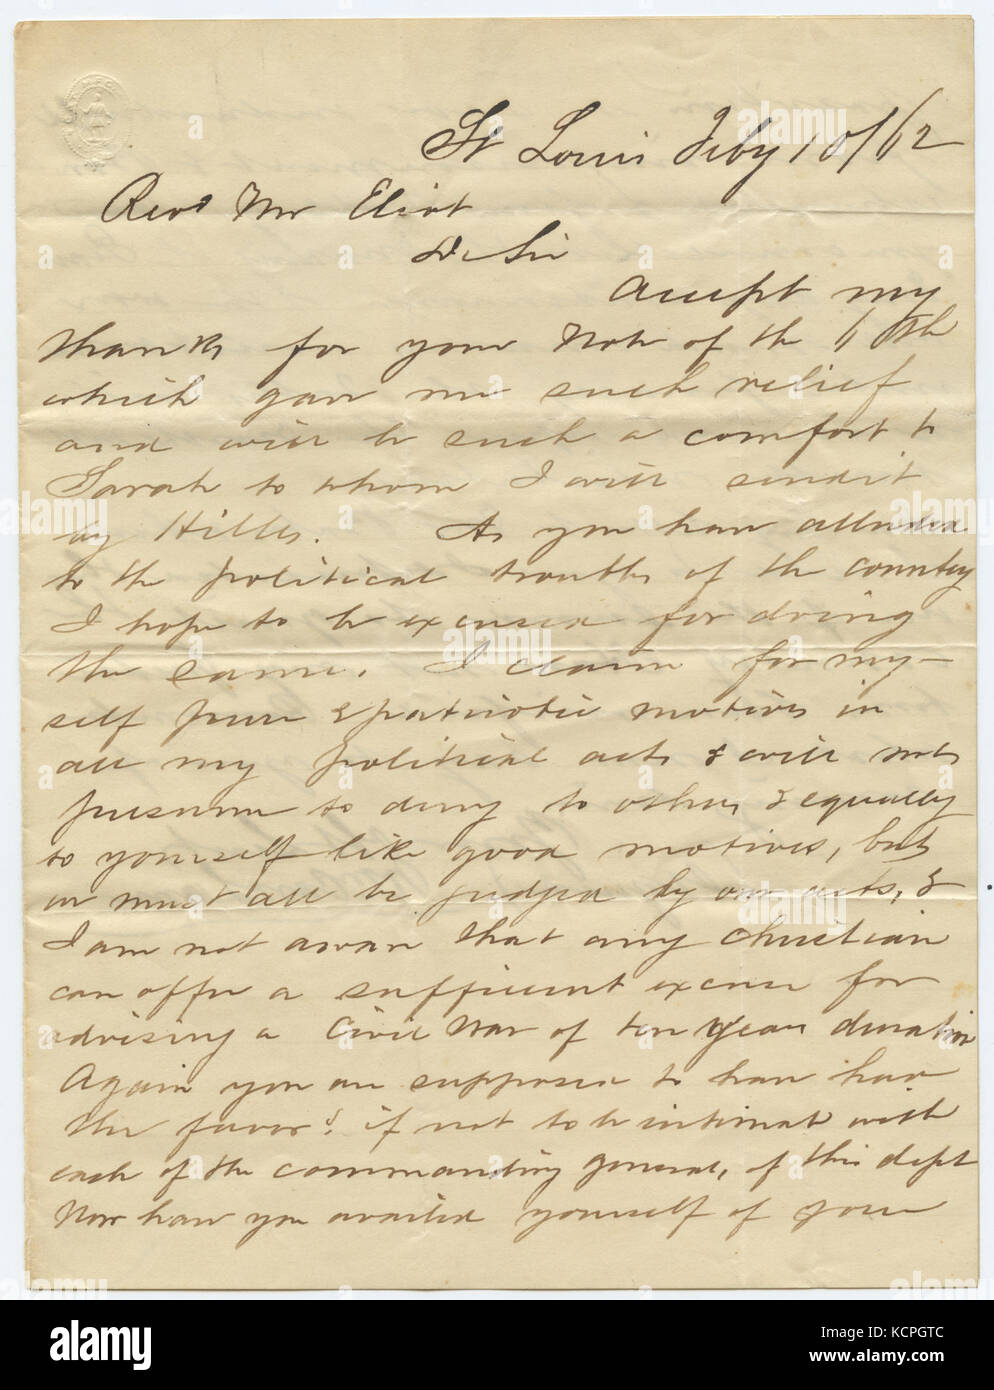 St Louis Feby 10/62
Revd Mr Eliot
D Sir
Accept my
thanks for your Note of the 6th
which gave me such relief
and will be such a comfort to
Sarah to whom I will send it
by Hills. As you have alluded
to the political troubles of the country
I hope to be excused for doing
the same. I claim for my-
self pure & patriotic motives in
all my political acts & will not
presume to deny to others & equally
to yourself like good motives, but
we must all be judged by our acts, &
I am not aware that any christian
can offer a sufficient excuse for
advising a Civil War of ten years duration
Again you are supposed to have had
the favor if not to be intimate with
each of the commanding generals, of this dept
Now have you availed yourself of your
alamy
Image ID: KCPGTC
www.alamy.com